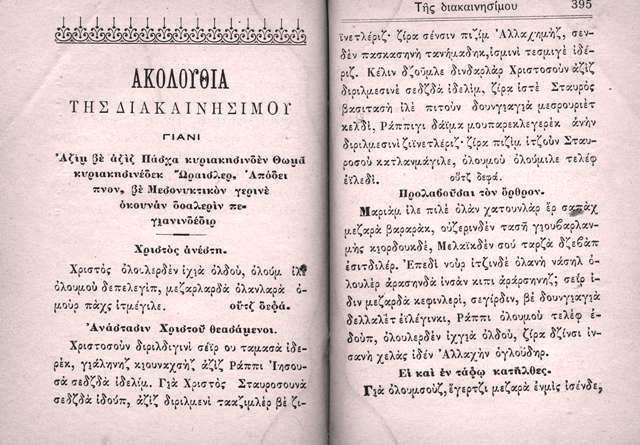 ΑΚΟΛΟΥΘΙΑ
ΤΗΣ ΔΙΑΚΑΙΝΗΣΙΜΟΥ
ΓΙΑΝΙ
Ἀζὶμ βὲ ἀζὶζ Πάσχα κυριακησινδὲν Θωμᾶ
κυριακησινέδεκ Ὡραίσλερ. Ἀπόδει
πνον, βὲ Μεσονυκτικὸν γερινὲ
ὀκουνὰν δοαλερὶν πε-
γιανινδέδιρ
Χριστὸς ἀνέστη.
Χριστὸς ὀλουλερδὲν ἐχγιὰ ὀλδού, ὀλοὺμ ἰλὲ
ὀλουμοῦ δεπελεγίπ, μεζαρλαρδὰ ὀλανλαρὰ ὀ-
μοὺρ πὰχς ἰτμέγιλε. οὒτζ δεφά.
Ἀνάστασιν Χριστοῦ θεασάμενοι.
Χριστοσοὺν διριλδιγινὶ σέϊρ ου ταμασὰ ἰδε-
ρέκ, γιάλην̇ηζ κιουναχσὴζ ἀζὶζ Ράππι Ἰησου-
σὰ σεδζδὰ ἰδελίμ. Γιὰ Χριστὸς Σταυροσουνὰ
σεδζδὰ ἰδούπ, ἀζὶζ διριλμενὶ τααζιμλὲρ βὲ ζι-
Τῆς διακαινησίμου 395
ϊνετλέριζ· ζίρα σένσιν πιζὶμ Ἀλλαχημήζ, σεν-
δὲν πασκασηνὴ τανήμαδηκ, ἰσμινὶ τεσμιγὲ ἰδέ-
ριζ. Κέλιν δζοῦμλε δινδαρλὰρ Χριστοσοὺν ἀζὶζ
διριλμεσινὲ σεδζδὰ ἰδελίμ, ζίρα ἰστὲ Σταυρὸς
βασιτασὴ ἰλὲ πιτοὺν δουνγιαγιὰ μεσρουριὲτ
κελδί, Ράππιγι δάϊμα μουπαρεκλεγερὲκ ἀνὴν
διριλμεσινὶ ζιϊνετλέριζ· ζίρα πιζὶμ ἰτζοὺν Σταυ-
ροσοῦ κατλανμάγιλε, ὀλουμοῦ ὀλούμιλε τελὲφ
ἐϊλεδί. οὒτζ δεφά.
Προλαβοῦσαι τὸν ὄρθρον.
Μαριὰμ ἰλε πιλὲ ὀλὰν χατουνλὰρ ἒρ σαπὰχ
μεζαρὰ βαραράκ, οὐζερινδὲν τασὴ γιουβαρλαν-
μὴς κιορδουκδέ, Μελαϊκδὲν σοῦ ταρζὰ δζεβὰπ
ἐσιτδιλέρ. Ἐπεδὶ νοὺρ ἰτζινδὲ ὀλανὴ νάσηλ ὀ-
λουλὲρ ἀρασηνδὰ ἰνσὰν κιπὶ ἀράρσηνηζ; σεϊρ ἰ-
δὶν μεζαρδὰ κεφινλερί, σεγίρδιν, βὲ δουνγιαγιὰ
δελλαλὲτ ἐϊλέγινκι, Ράππι ὀλουμοῦ τελὲφ ἐ-
δούπ, ὀλουλερδὲν ἐχγιὰ ὀλδού, ζίρα δζὶνσι ἰν-
σανὴ χελὰς ἰδὲν Ἀλλαχὴν ὀγλούδηρ.
Εἰ καὶ ἐν τάφῳ κατῆλθες.
Γιὰ ὀλουμσούζ, ἔγερτζι μεζαρὰ ἐνμὶς ἰσένδε,